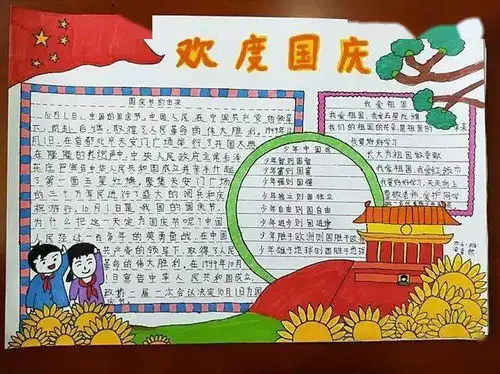 欢度国庆
国庆节的由来
10月1日,中国的国庆节,中国人民在中国共产党的领导
下,前赴后继,取得了人民革命的伟大胜利。1949年
月1日,在首都北京天安门广场举行了开国大典
在隆隆的礼炮声中,中央人民政府主席毛泽
东庄严宣告中华人民共和国成立并亲手升起
了第一面五星红旗。聚集天安门广场
的三十万军民进行了盛大的阅兵和庆
祝游行。10月1日是我国的国庆节
为什么把这一天定为国庆节呢?中国
人民经过一百多年的英勇奋战,在中国
共产党的领导下,取得了人民
革命的伟大胜利,在1949年10月
1日宣告中华人民共和国成立
二届二次会议决定10月1日为国
少年中国说
少年智则国智
少年富则国富
少年强则国强
少年独立则国独立
少年自由则国自由
少年进步则国进步
少年胜于欧洲则国胜于欧洲
少年雄于地球则国雄于地球
我爱祖国
我爱祖国,我爱五星红旗
我们的祖国的花朵,是祖国的未来
我要好好学习
长大为祖国做贡献
我爱祖国,我爱红领巾
我要好好学习,天天向上
尊敬老师,爱护同学